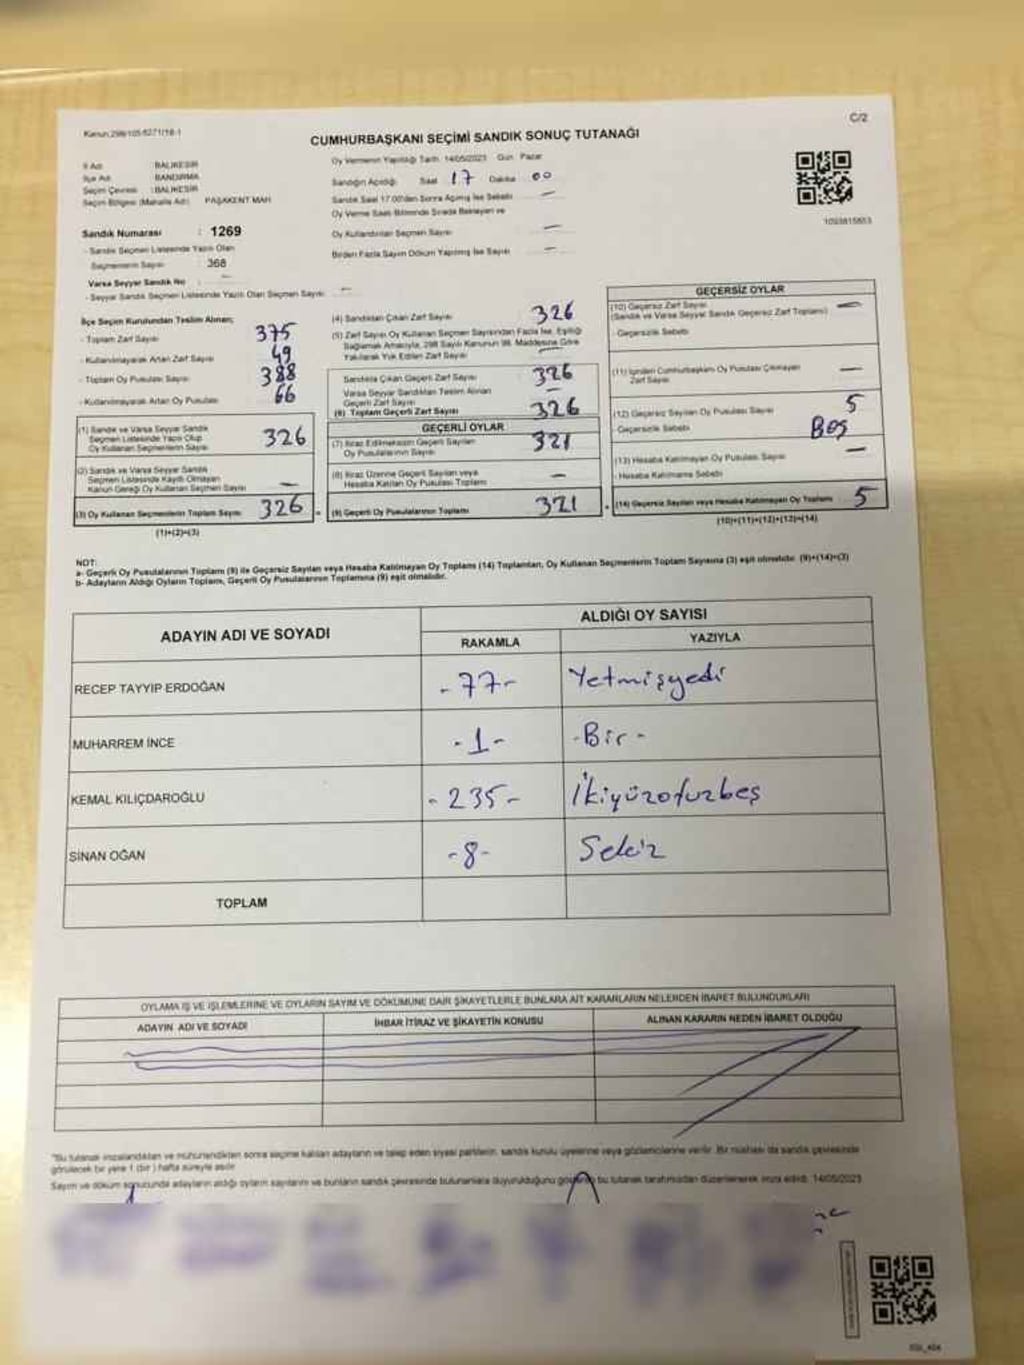 Kanun:298/105-6271/18-1
C/2
CUMHURBAŞKANI SEÇİMİ SANDIK SONUÇ TUTANAĞI
İl Adı : BALIKESİR
İlçe Adı : BANDIRMA
Seçim Çevresi : BALIKESİR
Seçim Bölgesi (Mahalle Adı) : PAŞAKENT MAH
Sandık Numarası : 1269
- Sandık Seçmen Listesinde Yazılı Olan
Seçmenlerin Sayısı : 368
Varsa Seyyar Sandık No : –
- Seyyar Sandık Seçmen Listesinde Yazılı Olan Seçmen Sayısı : –
Oy Vermenin Yapıldığı Tarih: 14/05/2023 Gün: Pazar
Sandığın Açıldığı Saat 17 Dakika 00
Sandık Saat 17.00'den Sonra Açılmış İse Sebebi –
Oy Verme Saati Bitiminde Sırada Bekleyen ve
Oy Kullandırılan Seçmen Sayısı –
Birden Fazla Sayım Döküm Yapılmış İse Sayısı –
1093815653
İlçe Seçim Kurulundan Teslim Alınan;
- Toplam Zarf Sayısı 375
- Kullanılmayarak Artan Zarf Sayısı 49
- Toplam Oy Pusulası Sayısı 388
- Kullanılmayarak Artan Oy Pusulası 66
(1) Sandık ve Varsa Seyyar Sandık
Seçmen Listesinde Yazılı Olup
Oy Kullanan Seçmenlerin Sayısı 326
(2) Sandık ve Varsa Seyyar Sandık
Seçmen Listesinde Kayıtlı Olmayan
Kanun Gereği Oy Kullanan Seçmen Sayısı –
(3) Oy Kullanan Seçmenlerin Toplam Sayısı 326
(1)+(2)=(3)
(4) Sandıktan Çıkan Zarf Sayısı 326
(5) Zarf Sayısı Oy Kullanan Seçmen Sayısından Fazla İse, Eşitliği
Sağlamak Amacıyla, 298 Sayılı Kanunun 98. Maddesine Göre
Yakılarak Yok Edilen Zarf Sayısı –
Sandıkta Çıkan Geçerli Zarf Sayısı 326
Varsa Seyyar Sandıktan Teslim Alınan
Geçerli Zarf Sayısı –
(6) Toplam Geçerli Zarf Sayısı 326
GEÇERLİ OYLAR
(7) İtiraz Edilmeksizin Geçerli Sayılan
Oy Pusulalarının Sayısı 321
(8) İtiraz Üzerine Geçerli Sayılan veya
Hesaba Katılan Oy Pusulası Toplamı –
(9) Geçerli Oy Pusulalarının Toplamı 321
GEÇERSİZ OYLAR
(10) Geçersiz Zarf Sayısı
(Sandık ve Varsa Seyyar Sandık Geçersiz Zarf Toplamı) –
- Geçersizlik Sebebi
(11) İçinden Cumhurbaşkanı Oy Pusulası Çıkmayan
Zarf Sayısı –
(12) Geçersiz Sayılan Oy Pusulası Sayısı 5
- Geçersizlik Sebebi Boş
(13) Hesaba Katılmayan Oy Pusulası Sayısı –
- Hesaba Katılmama Sebebi
(14) Geçersiz Sayılan veya Hesaba Katılmayan Oy Toplamı 5
(10)+(11)+(12)+(13)=(14)
NOT:
a- Geçerli Oy Pusulalarının Toplamı (9) ile Geçersiz Sayılan veya Hesaba Katılmayan Oy Toplamı (14) Toplamları, Oy Kullanan Seçmenlerin Toplam Sayısına (3) eşit olmalıdır. (9)+(14)=(3)
b- Adayların Aldığı Oyların Toplamı, Geçerli Oy Pusulalarının Toplamına (9) eşit olmalıdır.
ADAYIN ADI VE SOYADI
ALDIĞI OY SAYISI
RAKAMLA YAZIYLA
RECEP TAYYIP ERDOĞAN -77- Yetmişyedi
MUHARREM İNCE -1- -Bir-
KEMAL KILIÇDAROĞLU -235- İkiyüzotuzbeş
SİNAN OĞAN -8- Sekiz
TOPLAM
OYLAMA İŞ VE İŞLEMLERİNE VE OYLARIN SAYIM VE DÖKÜMÜNE DAİR ŞİKAYETLERLE BUNLARA AİT KARARLARIN NELERDEN İBARET BULUNDUKLARI
ADAYIN ADI VE SOYADI İHBAR İTİRAZ VE ŞİKAYETİN KONUSU ALINAN KARARIN NEDEN İBARET OLDUĞU
"Bu tutanak imzalandıktan ve mühürlendikten sonra seçime katılan adayların ve talep eden siyasi partilerin, sandık kurulu üyelerine veya gözlemcilerine verilir. Bir nüshası da sandık çevresinde
görülecek bir yere 1 (bir) hafta süreyle asılır.
Sayım ve döküm sonucunda adayların aldığı oyların sayılarını ve bunların sandık çevresinde bulunanlara duyurulduğunu gösteren bu tutanak tarafımızdan düzenlenerek imza edildi. 14/05/2023